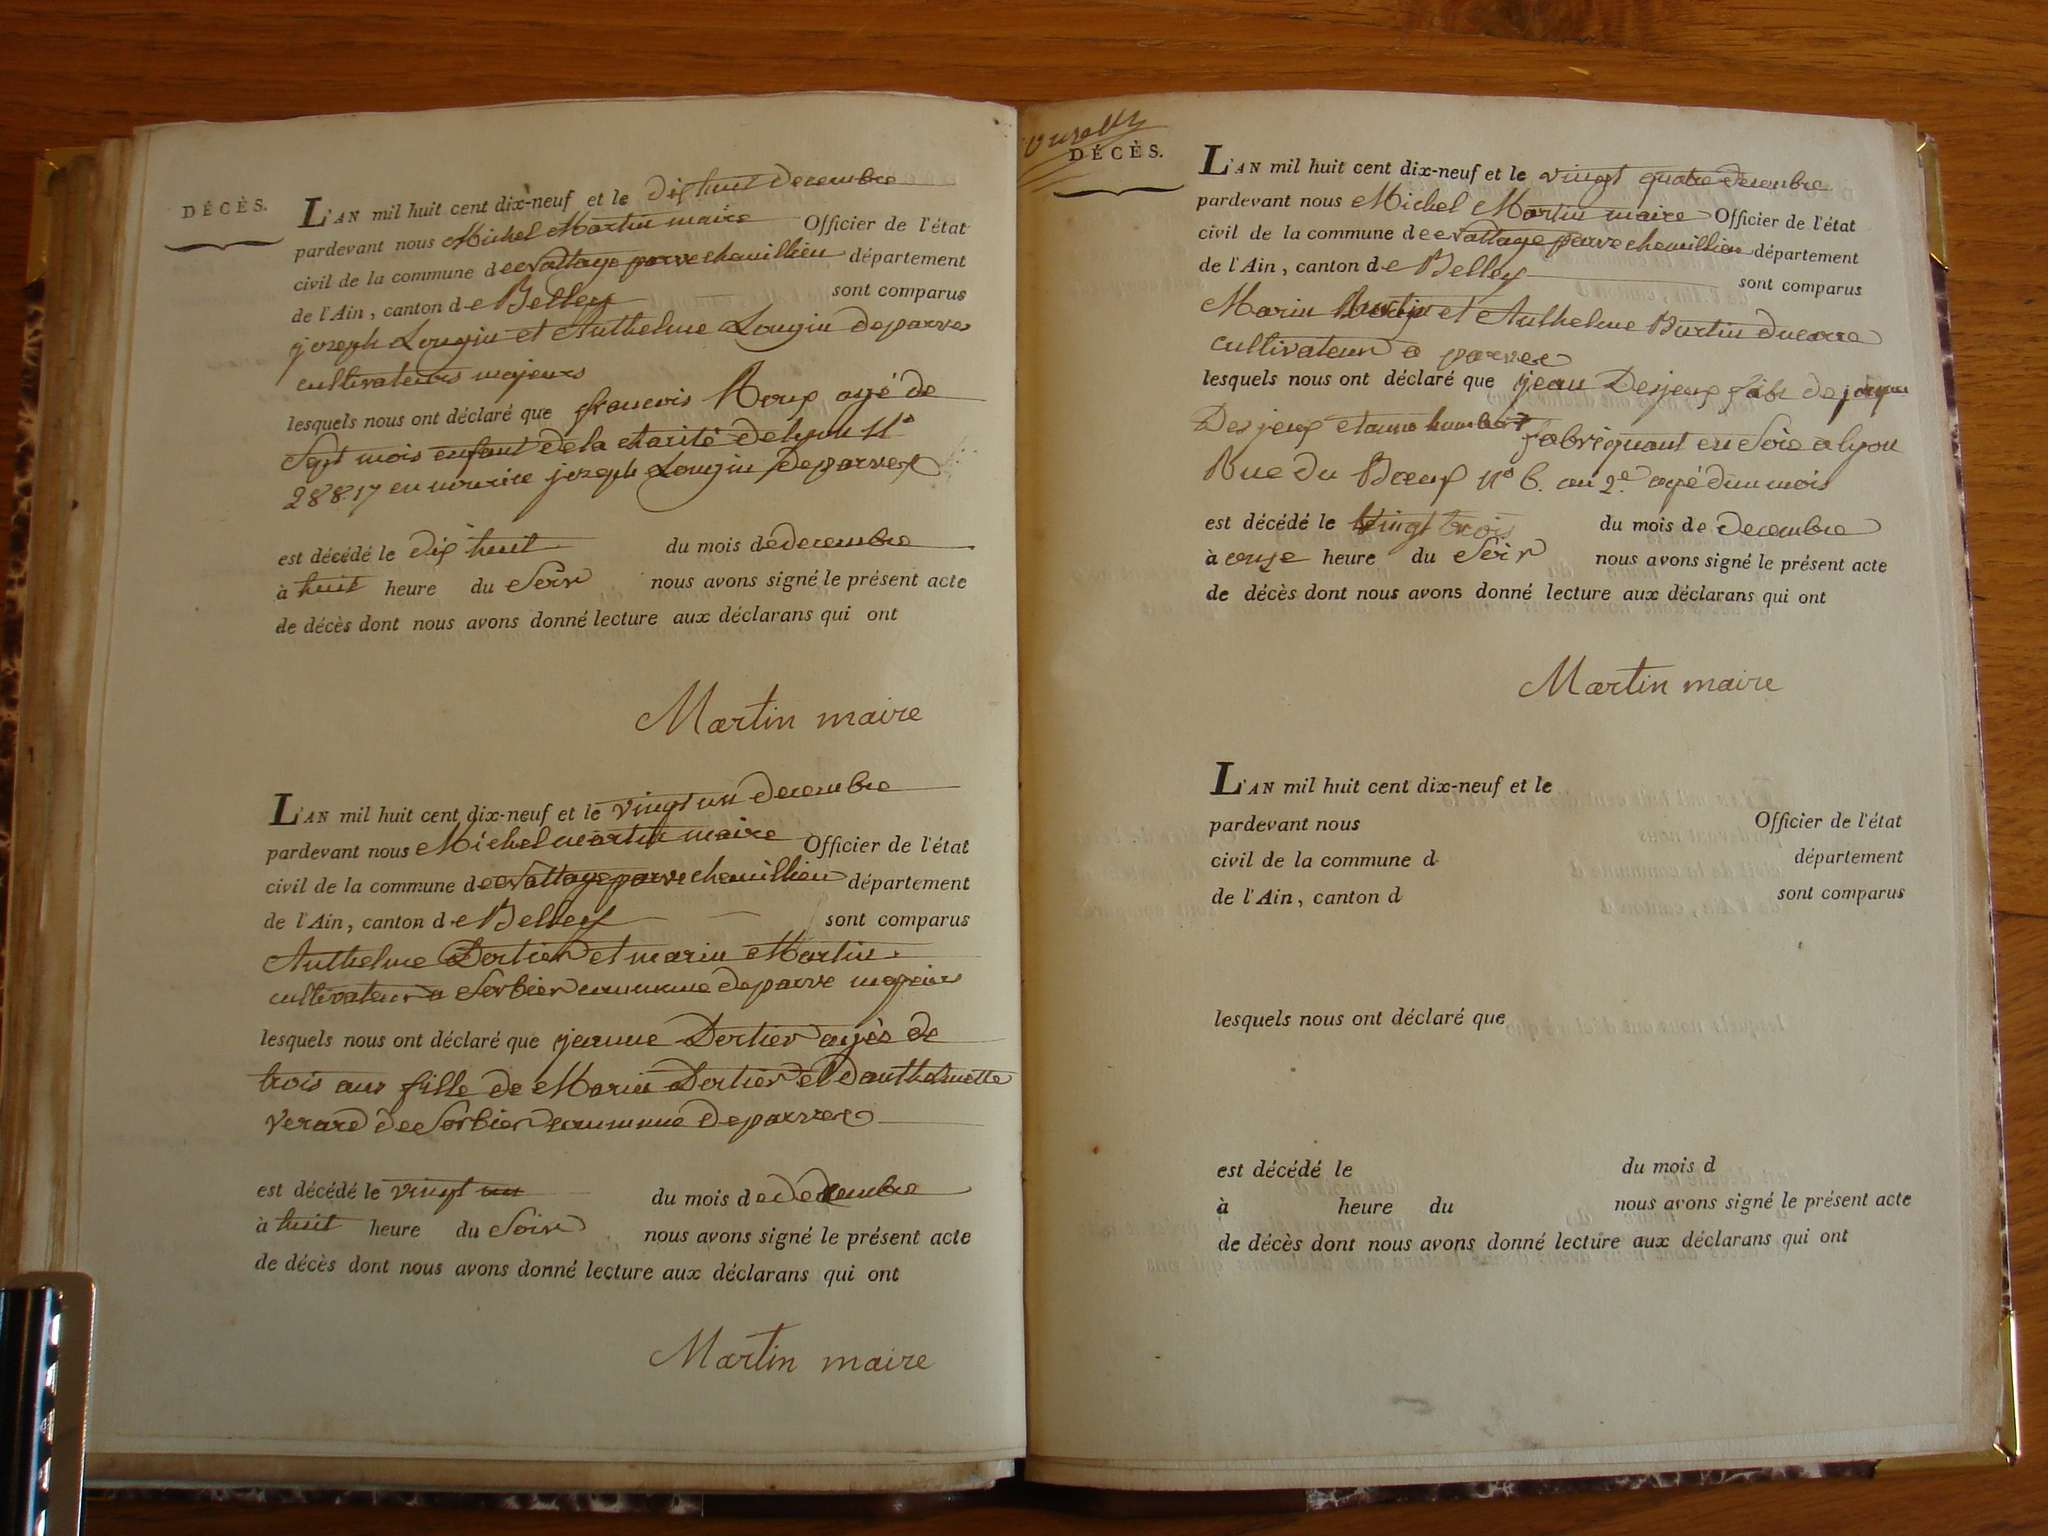 DÉCÈS.
L'AN mil huit cent dix-neuf et le dix huit decembre
pardevant nous Michel Martin maire Officier de l'état
civil de la commune de parve département
de l'Ain, canton de Belley sont comparus
joseph Lougin et Anthelme Lougin de parve
cultivateurs majeurs
lesquels nous ont déclaré que francois Roux agé de
Sept mois enfant de la charité de lyon n°
28817 en nourice joseph Lougin de parves
est décédé le dix huit du mois de decembre
à huit heure du Soir nous avons signé le présent acte
de décès dont nous avons donné lecture aux déclarans qui ont
Martin maire
L'AN mil huit cent dix-neuf et le vingt un decembre
pardevant nous Michel martin maire Officier de l'état
civil de la commune de parve département
de l'Ain, canton de Belley sont comparus
Anthelme Dortier et marin Martin
cultivateur a Sorbier commune de parve majeurs
lesquels nous ont déclaré que jeanne Dortier agés de
trois ans fille de Marin Dortier et Danthelmette
verard de Sorbier commune de parves
est décédé le vingt un du mois de decembre
à huit heure du Soir nous avons signé le présent acte
de décès dont nous avons donné lecture aux déclarans qui ont
Martin maire
DÉCÈS.
L'AN mil huit cent dix-neuf et le vingt quatre decembre
pardevant nous Michel Martin maire Officier de l'état
civil de la commune de parve département
de l'Ain, canton de Belley sont comparus
Marin et Anthelme Burtin
cultivateur a parves
lesquels nous ont déclaré que jean Desjeux fils de
Desjeux fabriquant en Soie a lyon
Rue du Boeuf n° 6. au 2e agé dun mois
est décédé le vingt trois du mois de decembre
à onze heure du Soir nous avons signé le présent acte
de décès dont nous avons donné lecture aux déclarans qui ont
Martin maire
L'AN mil huit cent dix-neuf et le
pardevant nous Officier de l'état
civil de la commune d département
de l'Ain, canton d sont comparus
lesquels nous ont déclaré que
est décédé le du mois d
à heure du nous avons signé le présent acte
de décès dont nous avons donné lecture aux déclarans qui ont